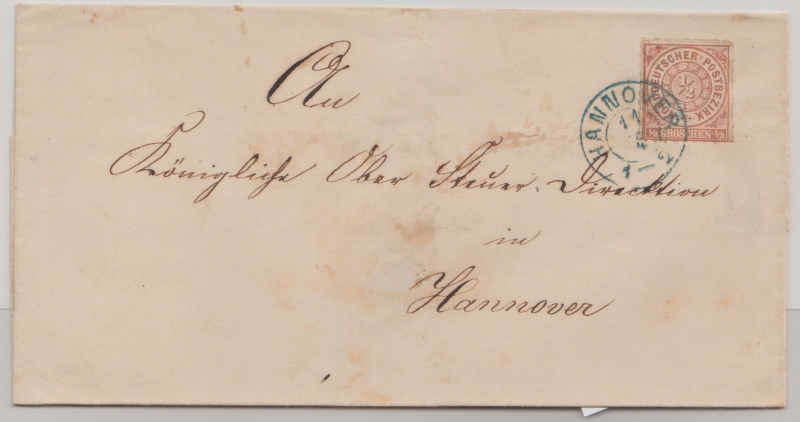 An
Königliche Ober Steuer-Direktion
in
Hannover
NORDDEUTSCHER POSTBEZIRK
1/2
1/2 GROSCHEN 1/2
HANNOVER
11